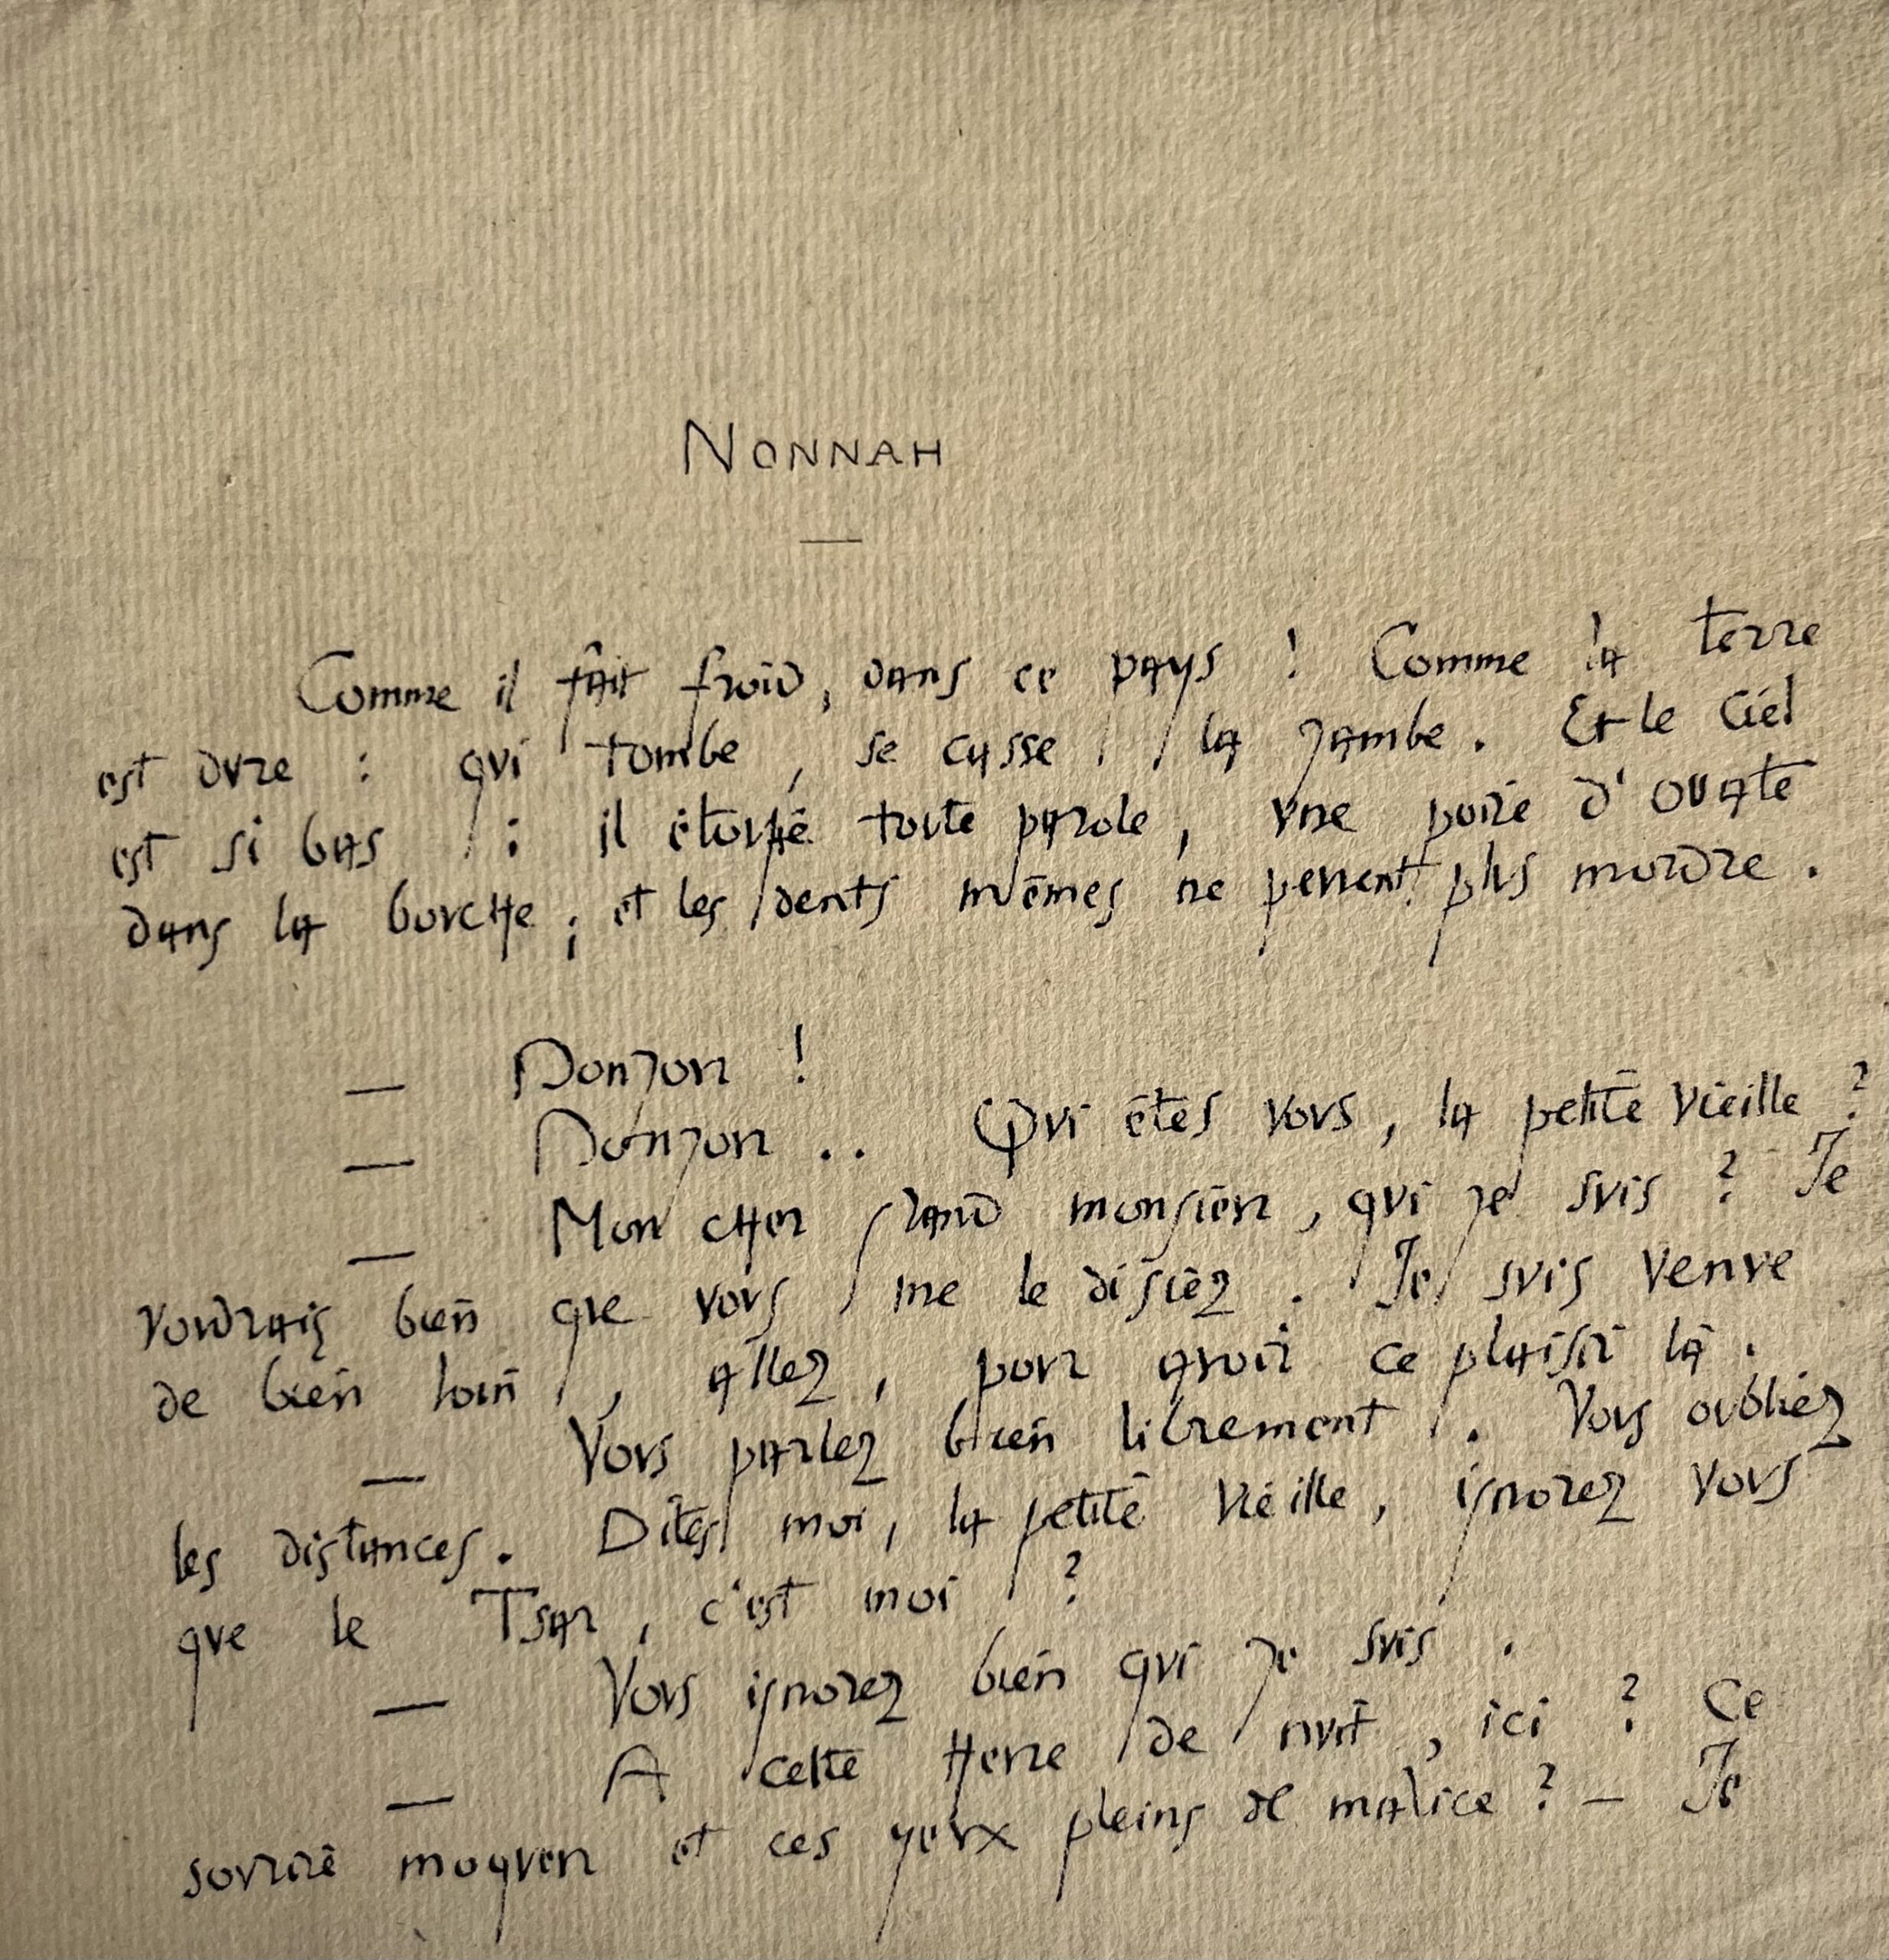 NONNAH
—
Comme il fait froid, dans ce pays ! Comme la terre
est dure : qui tombe, se casse la jambe. Et le ciel
est si bas : il étouffe toute parole, une poire d'ouate
dans la bouche ; et les dents mêmes ne peuvent plus mordre.
— Donjon !
— Donjon .. Qui êtes vous, la petite vieille ?
— Mon cher grand monsieur, qui je suis ? Je
voudrais bien que vous me le disiez. Je suis venue
de bien loin, allez, pour avoir ce plaisir là.
— Vous parlez bien librement. Vous oubliez
les distances. Dites moi, la petite vieille, ignorez vous
que le Tsar, c'est moi ?
— Vous ignorez bien qui je suis.
— A cette heure de nuit, ici ? Ce
sourire moqueur et ces yeux pleins de malice ? — Je